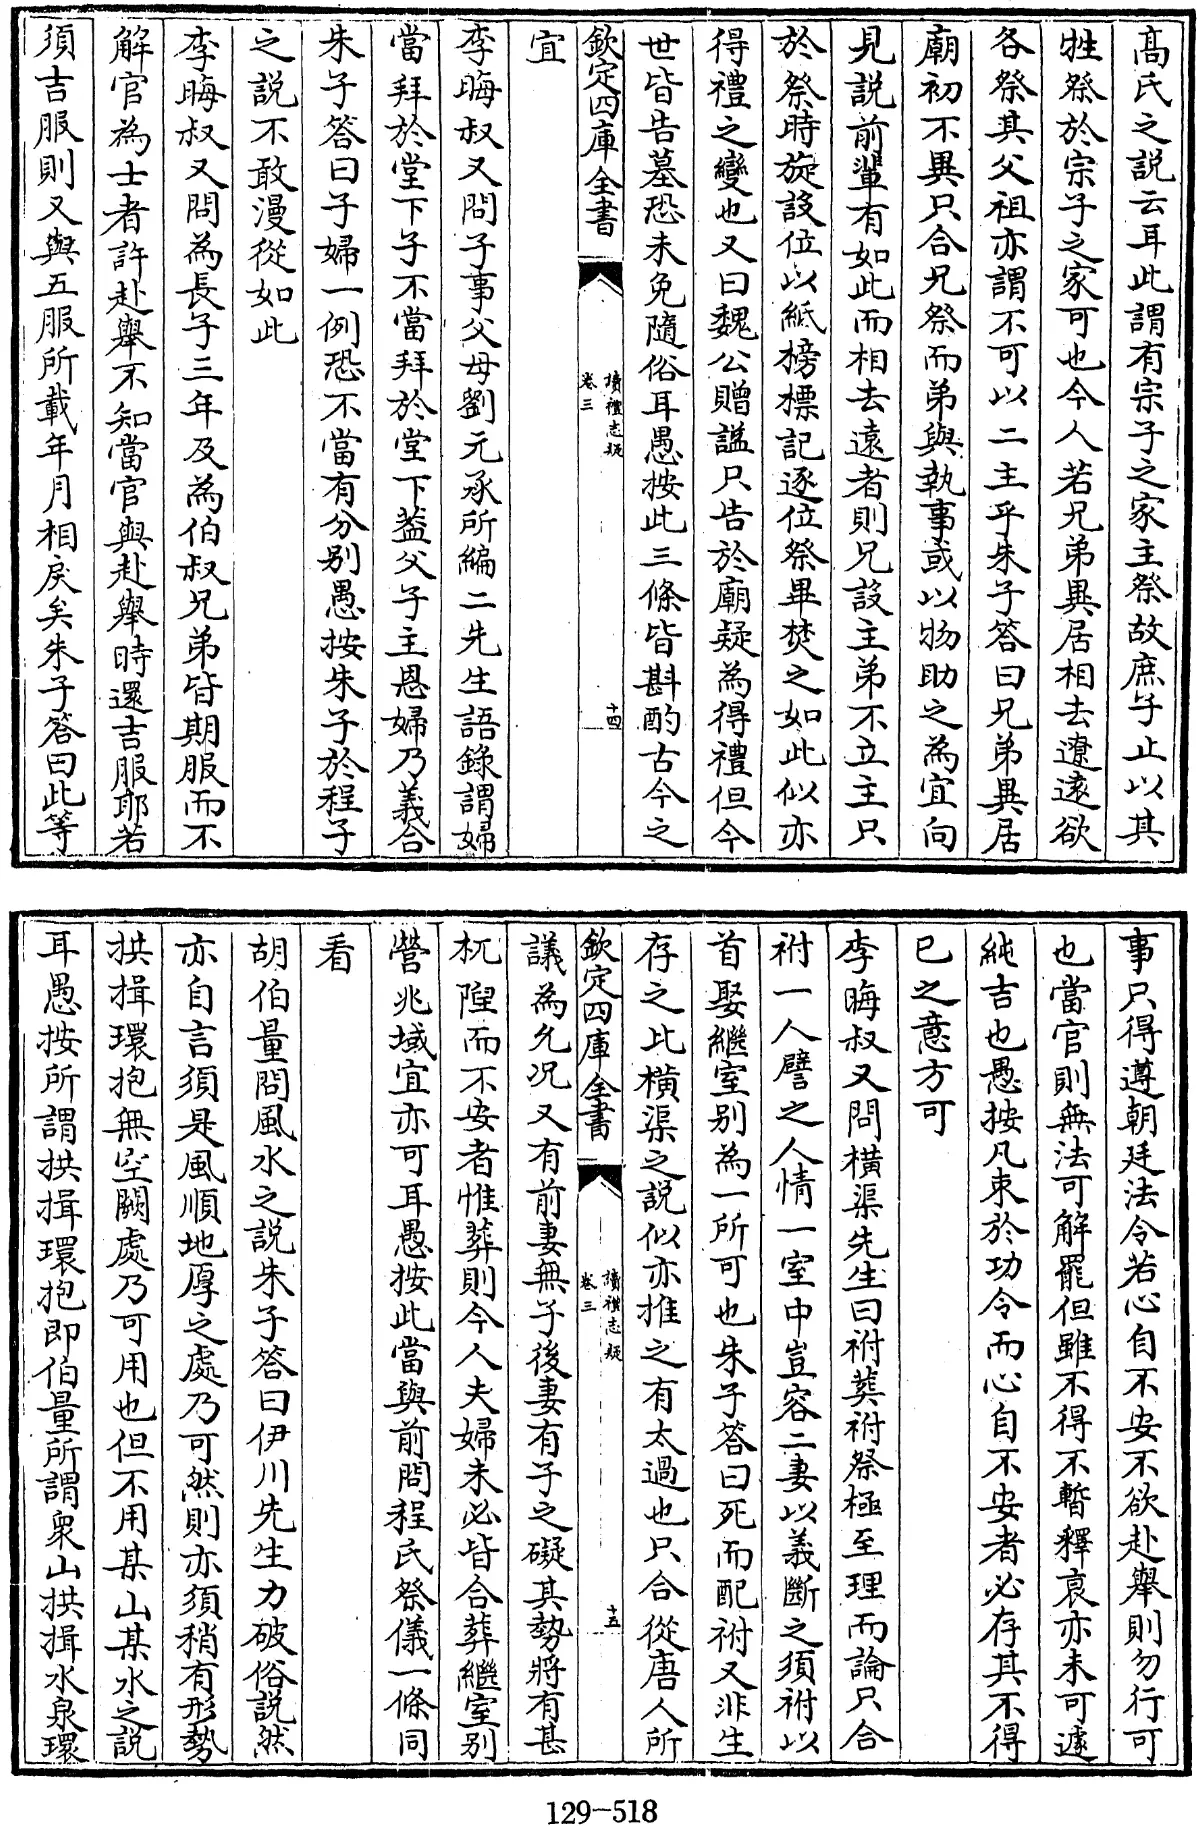 高氏之說云耳此謂有宗子之家主祭故庶子止以其
牲祭於宗子之家可也今人若兄弟異居相去遼逺欲
各祭其父祖亦謂不可以二主乎朱子答曰兄弟異居
廟初不異只合兄祭而弟與執事或以物助之為宜向
見說前輩有如此而相去遠者則兄設主弟不立主只
於祭時旋設位以紙榜標記逐位祭畢焚之如此似亦
得禮之變也又曰魏公贈諡只告於廟疑為得禮但今
世皆告墓恐未免隨俗耳愚按此三條皆斟酌古今之
欽定四庫全書
讀禮志疑
卷三
十四
宜
李晦叔又問子事父母劉元承所編二先生語錄謂婦
當拜於堂下子不當拜於堂下葢父子主恩婦乃義合
朱子答曰子婦一例恐不當有分别愚按朱子於程子
之說不敢漫從如此
李晦叔又問為長子三年及為伯叔兄弟皆期服而不
解官為士者許赴舉不知當官與赴舉時還吉服耶若
須吉服則又與五服所載年月相戾矣朱子答曰此等
事只得遵朝廷法令若心自不安不欲赴舉則勿行可
也當官則無法可解罷但雖不得不暫釋哀亦未可遽
純吉也愚按凡束於功令而心自不安者必存其不得
已之意方可
李晦叔又問橫渠先生曰祔葬祔祭極至理而論只合
祔一人譬之人情一室中豈容二妻以義斷之須祔以
首娶繼室别為一所可也朱子答曰死而配祔又非生
存之比橫渠之說似亦推之有太過也只合從唐人所
欽定四庫全書
讀禮志疑
卷三
十五
議為允况又有前妻無子後妻有子之礙其勢將有甚
杌隉而不安者惟葬則今人夫婦未必皆合葬繼室别
營兆域宜亦可耳愚按此當與前問程氏祭儀一條同
看
胡伯量問風水之說朱子答曰伊川先生力破俗說然
亦自言須是風順地厚之處乃可然則亦須稍有形勢
拱揖環抱無空闕處乃可用也但不用某山某水之說
耳愚按所謂拱揖環抱即伯量所謂衆山拱揖水泉環
129-518